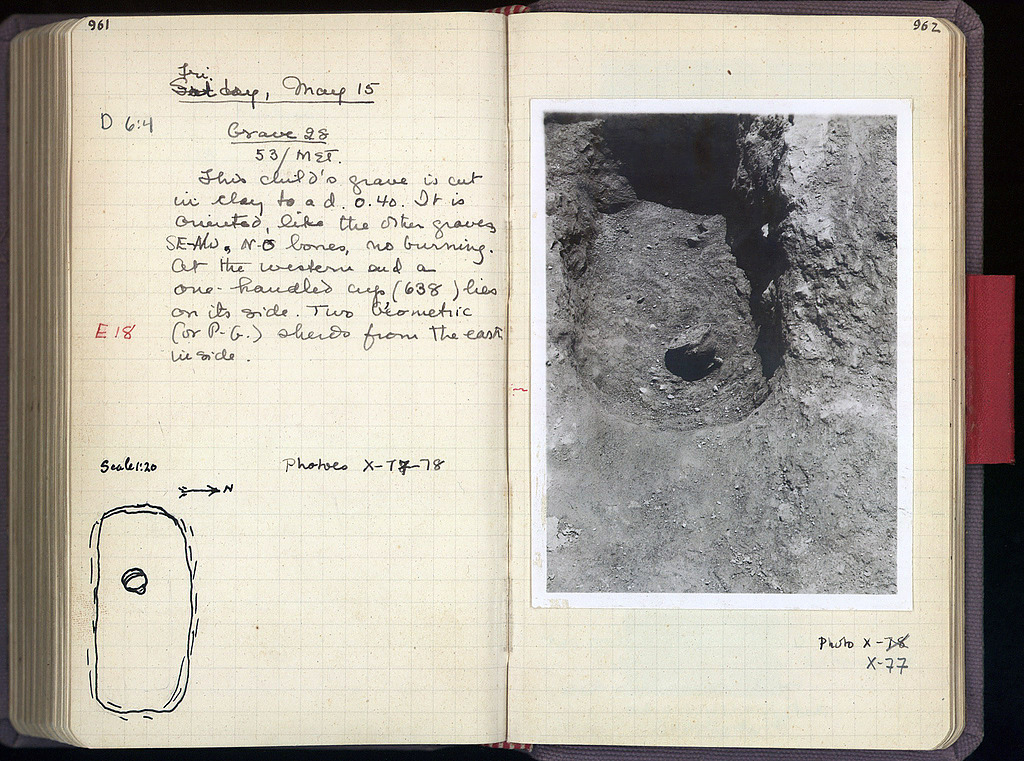 961
Fri.
Satday, May 15
D 6:4
Grave 28
53/MET.
This child's grave is cut
in clay to a d. 0.40. It is
oriented, like the other graves
SE-NW. No bones, no burning.
At the western end a
one-handled cup (638) lies
on its side. Two Geometric
E 18
(or P-G.) sherds from the east
inside.
Scale 1:20
Photoes X-77-78
N
962
Photo X-78
X-77